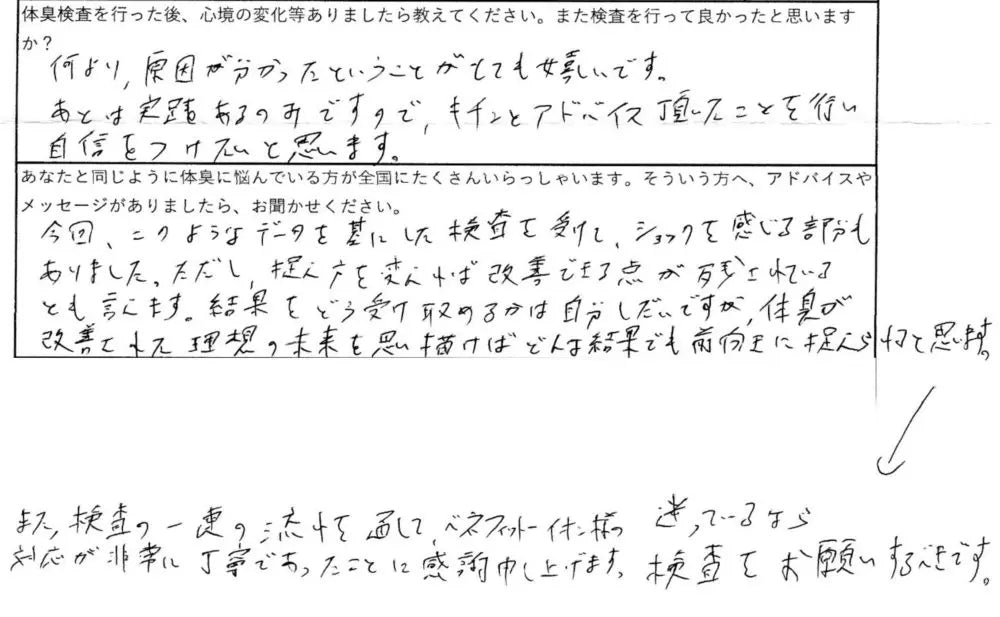 体臭検査を行った後、心境の変化等ありましたら教えてください。また検査を行って良かったと思います
か?
何より,原因が分かったということがとても嬉しいです。
あとは実践あるのみですので,キチンとアドバイス頂いたことを行い
自信をつけたいと思います。
あなたと同じように体臭に悩んでいる方が全国にたくさんいらっしゃいます。そういう方へ、アドバイスや
メッセージがありましたら、お聞かせください。
今回、このようなデータを基にした検査を受けて、ショックを感じる部分も
ありました。ただし,捉え方を変えれば改善できる点が残されている
とも言えます。結果をどう受け取めるかは自分しだいですが,体臭が
改善された理想の未来を思い描けばどんな結果でも前向きに捉えられると思います。
また,検査の一連の流れを通して,ベネフィットーイオン様の
対応が非常に丁寧であったことに感謝申し上げます。
迷っているなら
検査をお願いするべきです。